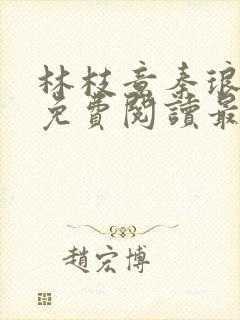 林枝意秦琅
免費閱讀最
趙宏博